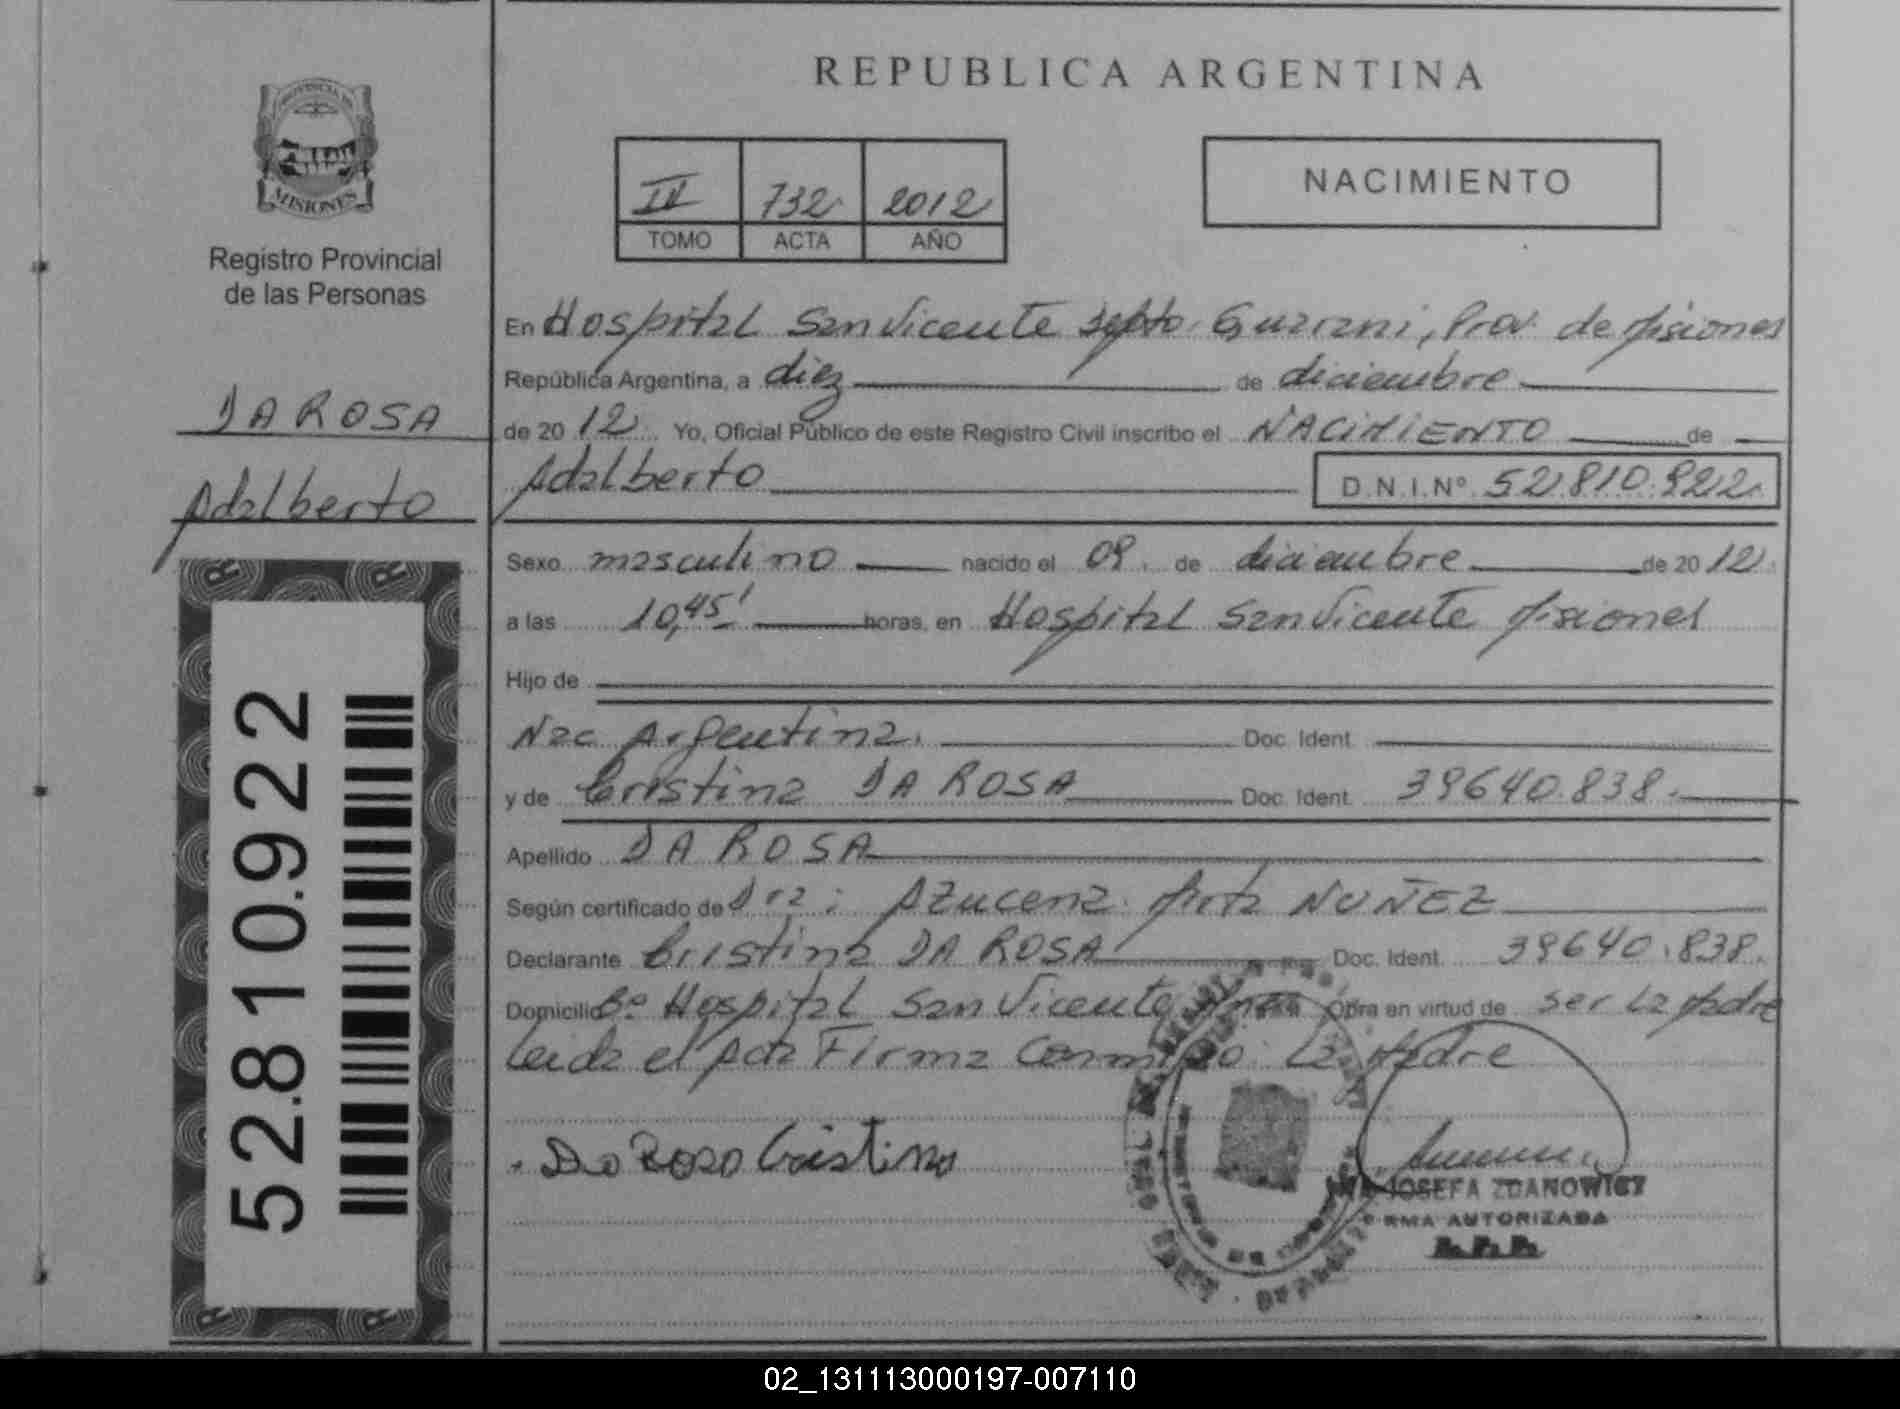 REPUBLICA ARGENTINA
PROVINCIA DE
MISIONES
Registro Provincial
de las Personas
IV 732 2012
TOMO ACTA AÑO
NACIMIENTO
DA ROSA
Adalberto
52.810.922
En Hospital San Vicente Dpto. Guarani, Prov. de Misiones
República Argentina, a diez de diciembre
de 20 12 Yo, Oficial Público de este Registro Civil inscribo el NACIMIENTO de
Adalberto D.N.I.Nº 52.810.922
Sexo masculino nacido el 09 de diciembre de 20 12
a las 10,45' horas, en Hospital San Vicente Misiones
Hijo de
Nac Argentina. Doc. Ident.
y de Cristina DA ROSA Doc. Ident. 39640.838.
Apellido DA ROSA
Según certificado de Dra: Azucena Mirta NUÑEZ
Declarante Cristina DA ROSA Doc. Ident. 39640.838.
Domicilio Bº Hospital San Vicente Mnes Obra en virtud de ser la Madre
Leida el Acta Firma Conmigo: La Madre
Da Rosa Cristina
JOSEFA ZDANOWICZ
FIRMA AUTORIZADA
R.P.P.
02_131113000197-007110